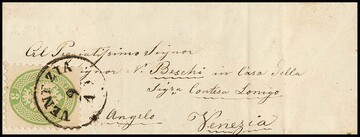 Al Prestatissimo Signor
Signor V. Beschi in Casa della
Sigra Contesa Lonigo
S. Angelo
Venezia
VENEZIA